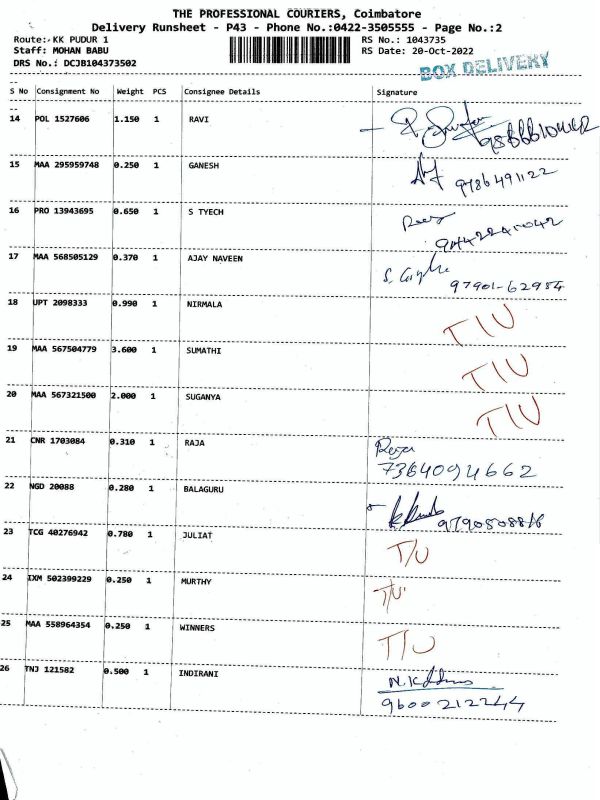 THE PROFESSIONAL COURIERS, Coimbatore
Delivery Runsheet - P43 - Phone No.:0422-3505555 - Page No.:2
Route:- KK PUDUR 1 RS No.: 1043735
Staff: MOHAN BABU RS Date: 20-Oct-2022
DRS No.: DCJB104373502
BOX DELIVERY
S No Consignment No Weight PCS Consignee Details Signature
14 POL 1527606 1.150 1 RAVI
15 MAA 295959748 0.250 1 GANESH
9786491122
16 PRO 13943695 0.650 1 S TYECH
17 MAA 568505129 0.370 1 AJAY NAVEEN
97901-62984
18 UPT 2098333 0.990 1 NIRMALA T/U
19 MAA 567504779 3.600 1 SUMATHI T/U
20 MAA 567321500 2.000 1 SUGANYA T/U
21 CNR 1703084 0.310 1 RAJA Reja
7364094662
22 NGD 20088 0.280 1 BALAGURU
9790508816
23 TCG 40276942 0.780 1 JULIAT T/U
24 IXM 502399229 0.250 1 MURTHY T/U
25 MAA 558964354 0.250 1 WINNERS T/U
26 TNJ 121582 0.500 1 INDIRANI
9600212244